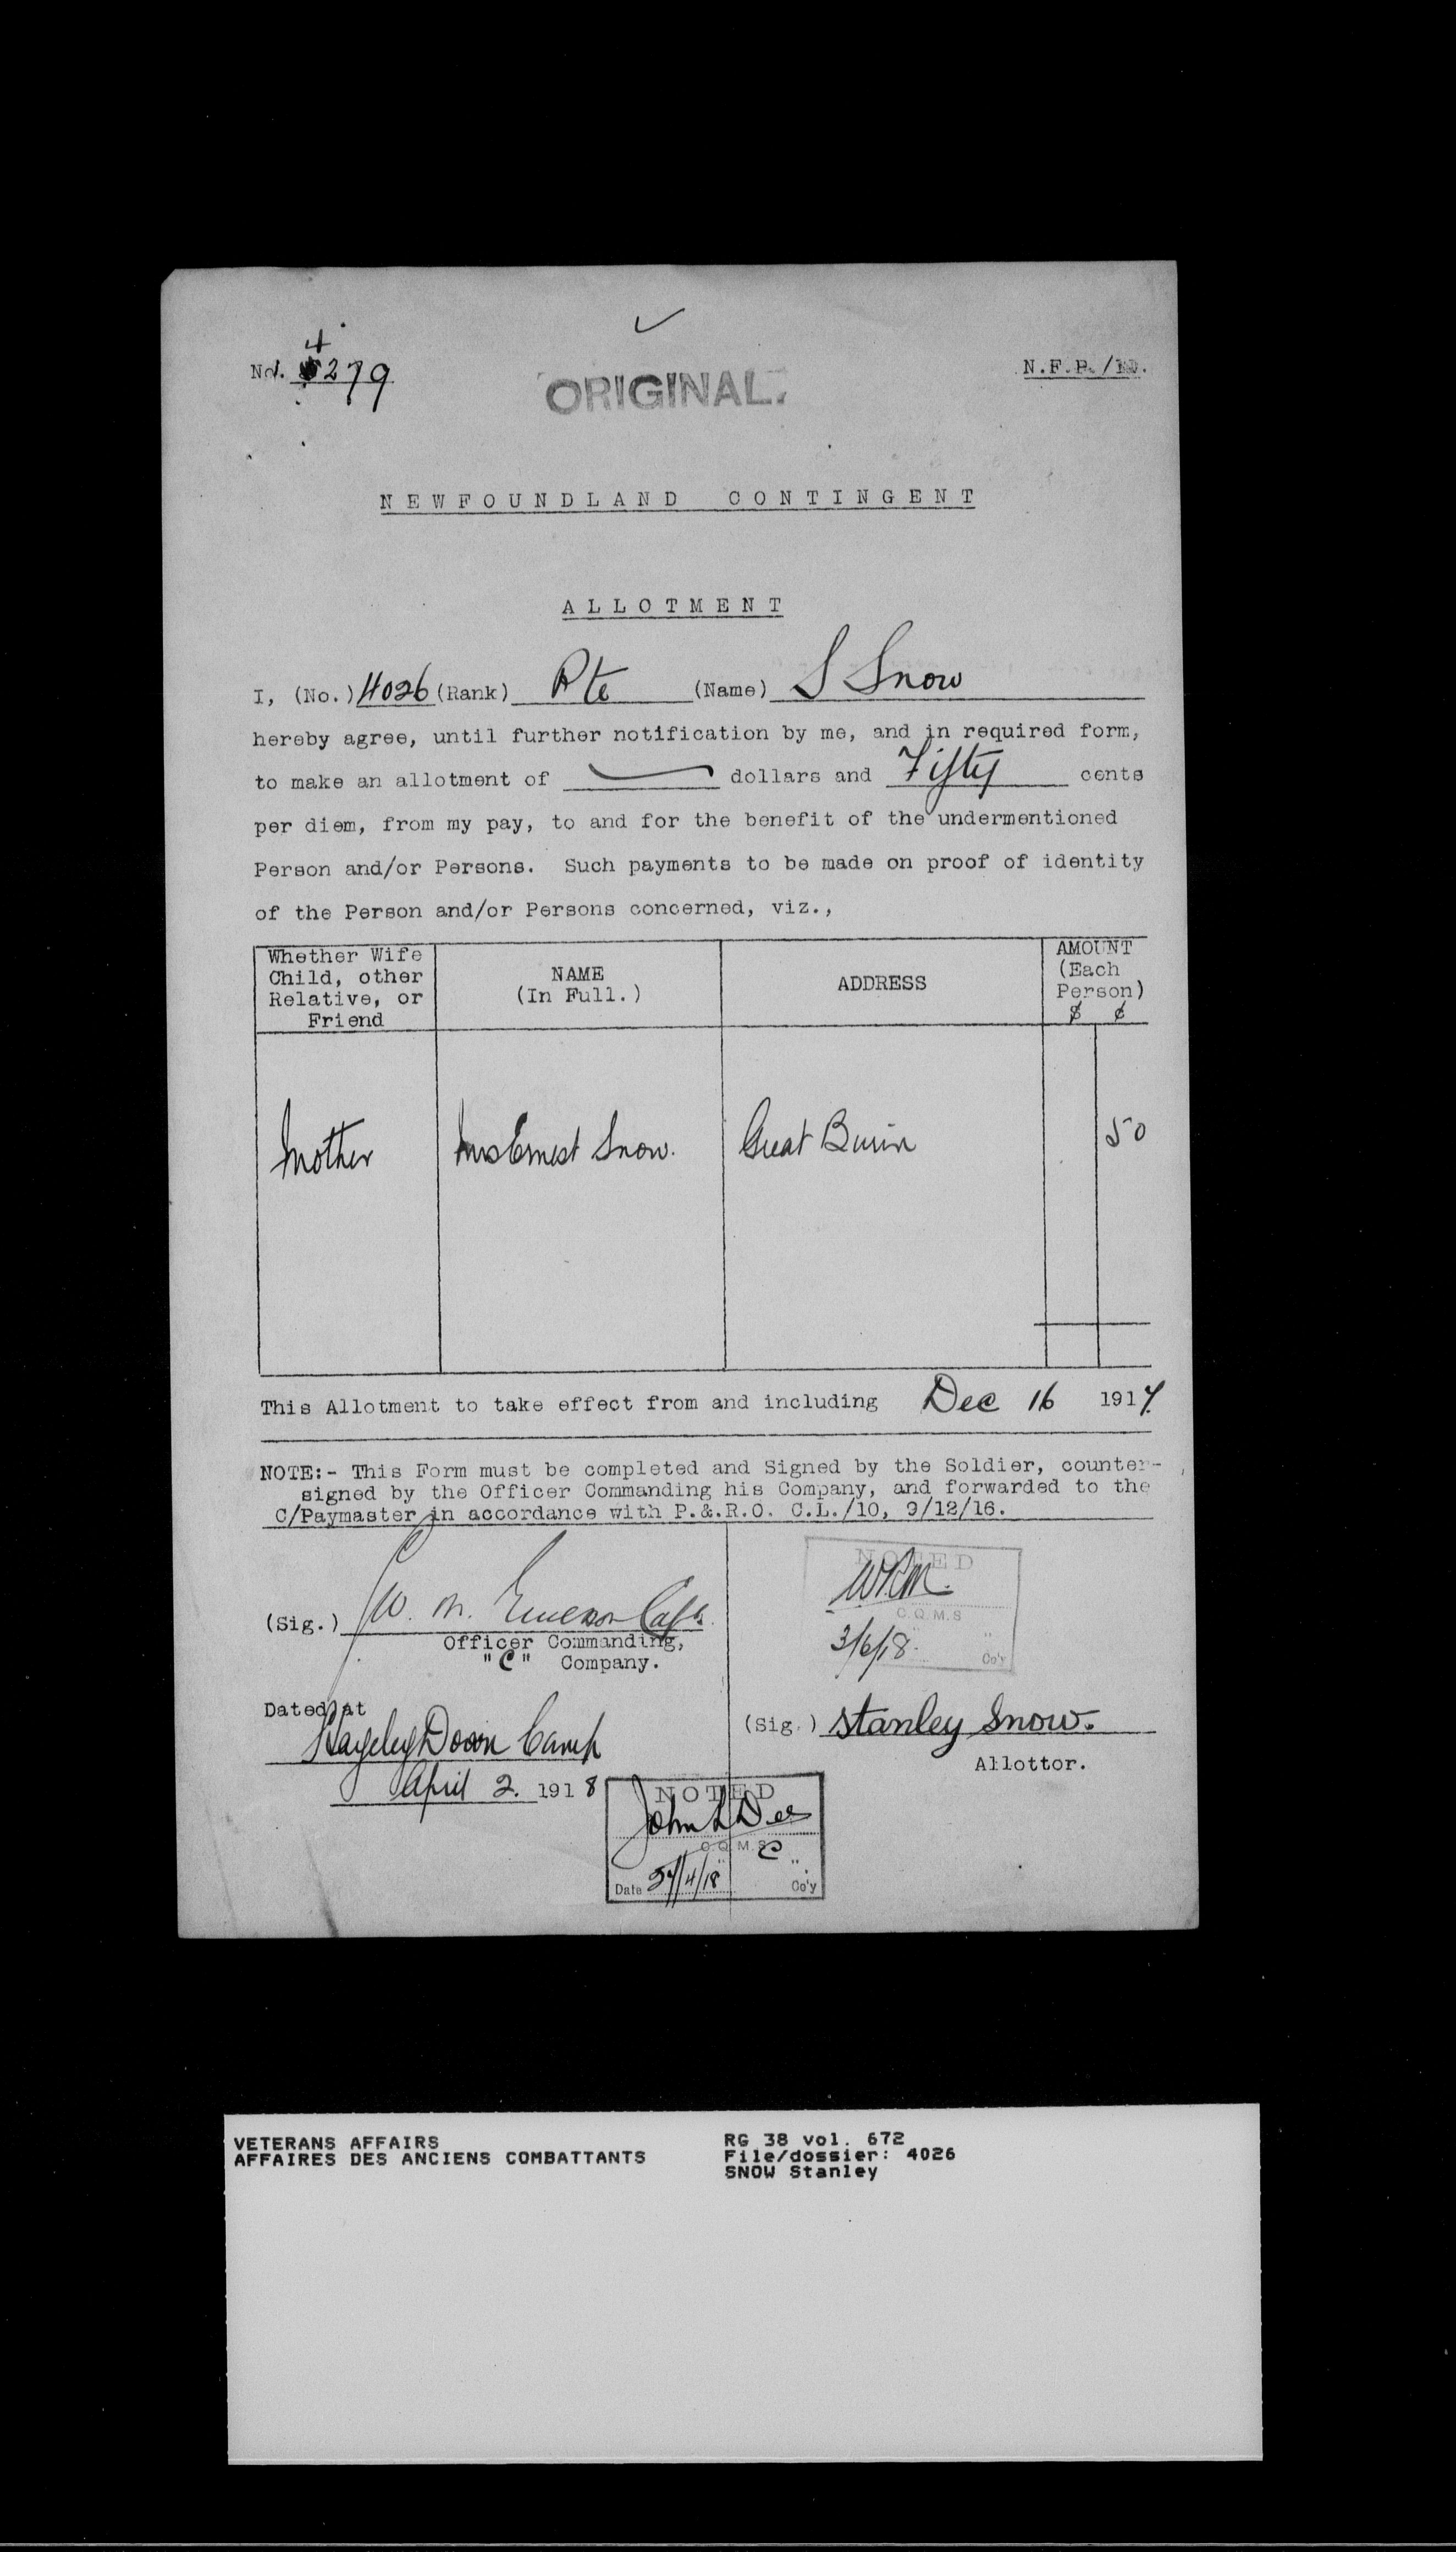 No. 4279
ORIGINAL.
N.F.P./
NEWFOUNDLAND CONTINGENT
ALLOTMENT
I, (No.) 4026 (Rank) Pte (Name) S Snow
hereby agree, until further notification by me, and in required form,
to make an allotment of — dollars and Fifty cents
per diem, from my pay, to and for the benefit of the undermentioned
Person and/or Persons. Such payments to be made on proof of identity
of the Person and/or Persons concerned, viz.,
Whether Wife
Child, other
Relative, or
Friend
NAME
(In Full.)
ADDRESS
AMOUNT
(Each
Person)
$ ¢
Mother Mrs Ernest Snow. Great Burin 50
This Allotment to take effect from and including Dec 16 1917.
NOTE:- This Form must be completed and Signed by the Soldier, counter-
signed by the Officer Commanding his Company, and forwarded to the
C/Paymaster in accordance with P.&.R.O. C.L./10, 9/12/16.
NOTED
C.Q.M.S
3/6/18
Co'y
(Sig.) Capt.
Officer Commanding,
"C" Company.
Dated at
Down Camp
April 2. 1918
(Sig.) Stanley Snow.
Allottor.
NOTED
John
C.Q.M.S
C
Date /4/18 Co'y
VETERANS AFFAIRS
AFFAIRES DES ANCIENS COMBATTANTS
RG 38 vol. 672
File/dossier: 4026
SNOW Stanley